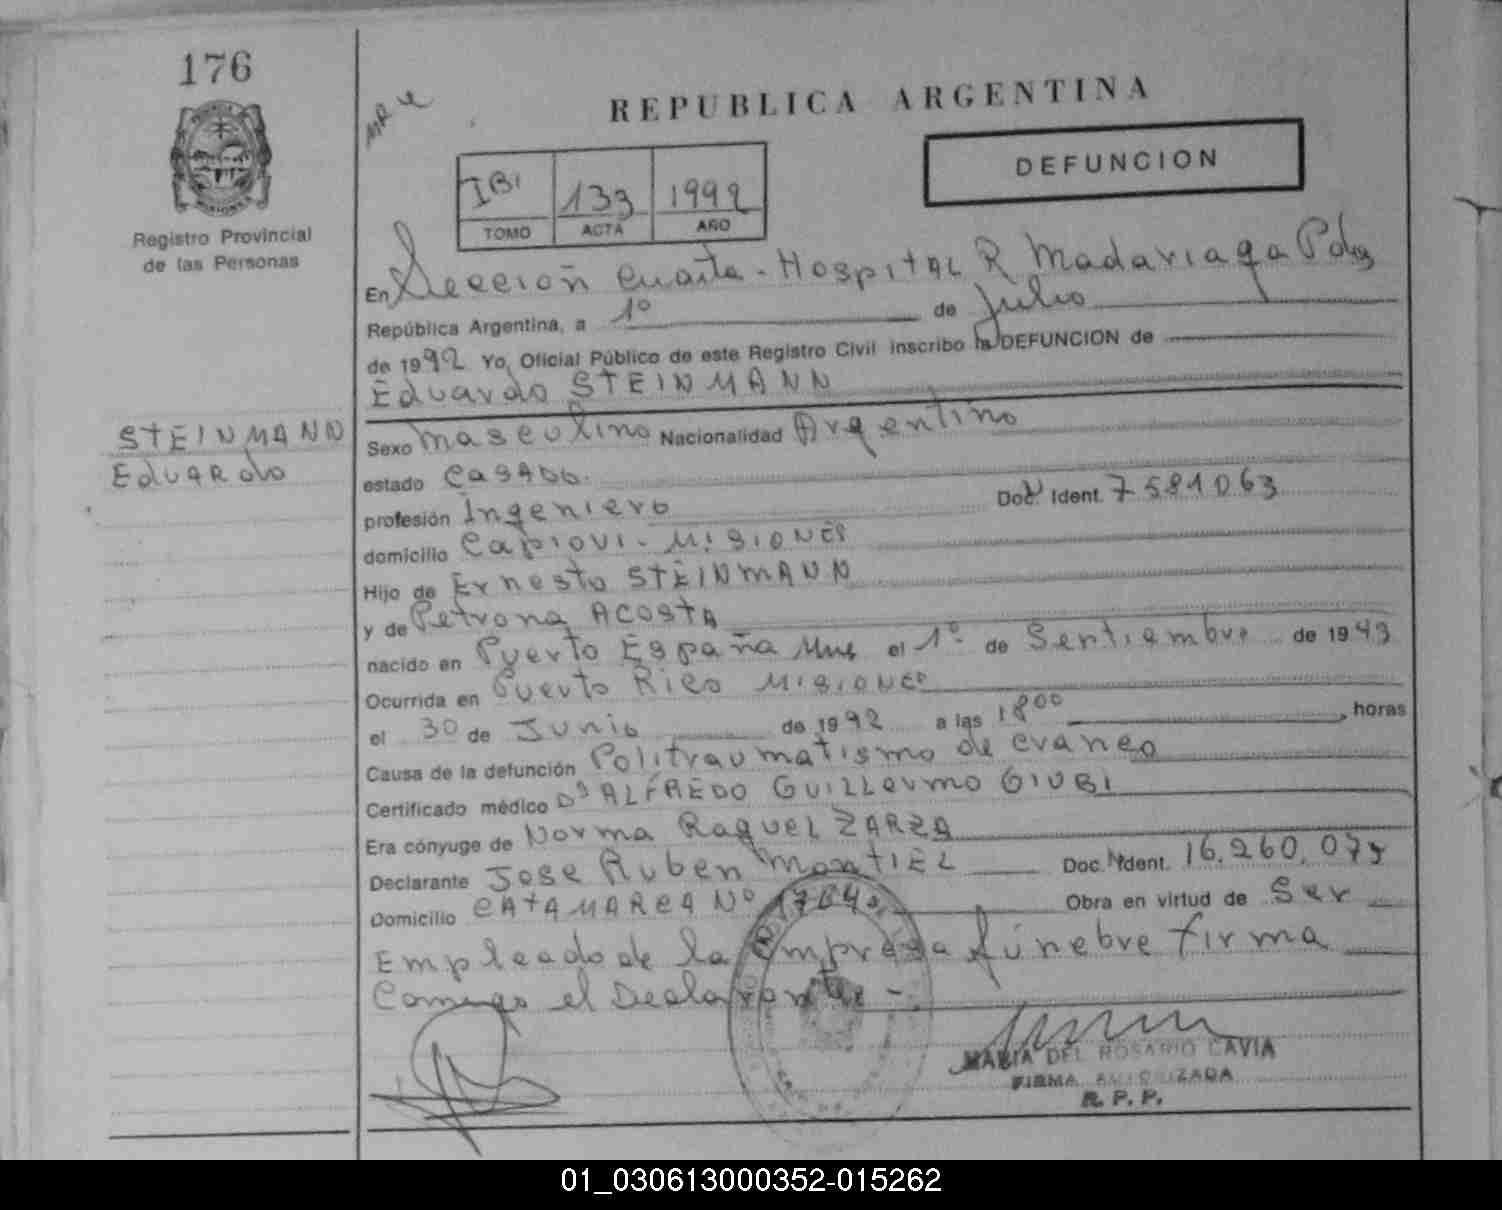 176
Registro Provincial
de las Personas
STEINMANN
Eduardo
REPUBLICA ARGENTINA
DEFUNCION
1Bi 133 1992
TOMO ACTA AÑO
En Sección Cuarta - Hospital R Madariaga Pdas
República Argentina, a 1º de Julio
de 1992 Yo, Oficial Público de este Registro Civil inscribo la DEFUNCION de
Eduardo STEINMANN
Sexo masculino Nacionalidad Argentino
estado Casado.
profesión Ingeniero Doc. Ident. 7581063
domicilio Capiovi - Misiones
Hijo de Ernesto STEINMANN
y de Petrona ACOSTA
nacido en Puerto España Mnes el 1º de Sentiembre de 1943
Ocurrida en Puerto Rico Misiones
el 30 de Junio de 1992 a las 1800, horas
Causa de la defunción Politraumatismo de craneo
Certificado médico Dr ALFREDO GUILLermo GIUBI
Era cónyuge de Norma Raquel ZARZA
Declarante Jose Ruben MontIEL Doc. Ident. 16.260.075
Domicilio CATAMARCA Nº 1764 Obra en virtud de Ser
Empleado de la Empresa fúnebre firma
Comigo el Declarante -
MARIA DEL ROSARIO CAVIA
FIRMA AUTORIZADA
R. P. P.
01_030613000352-015262